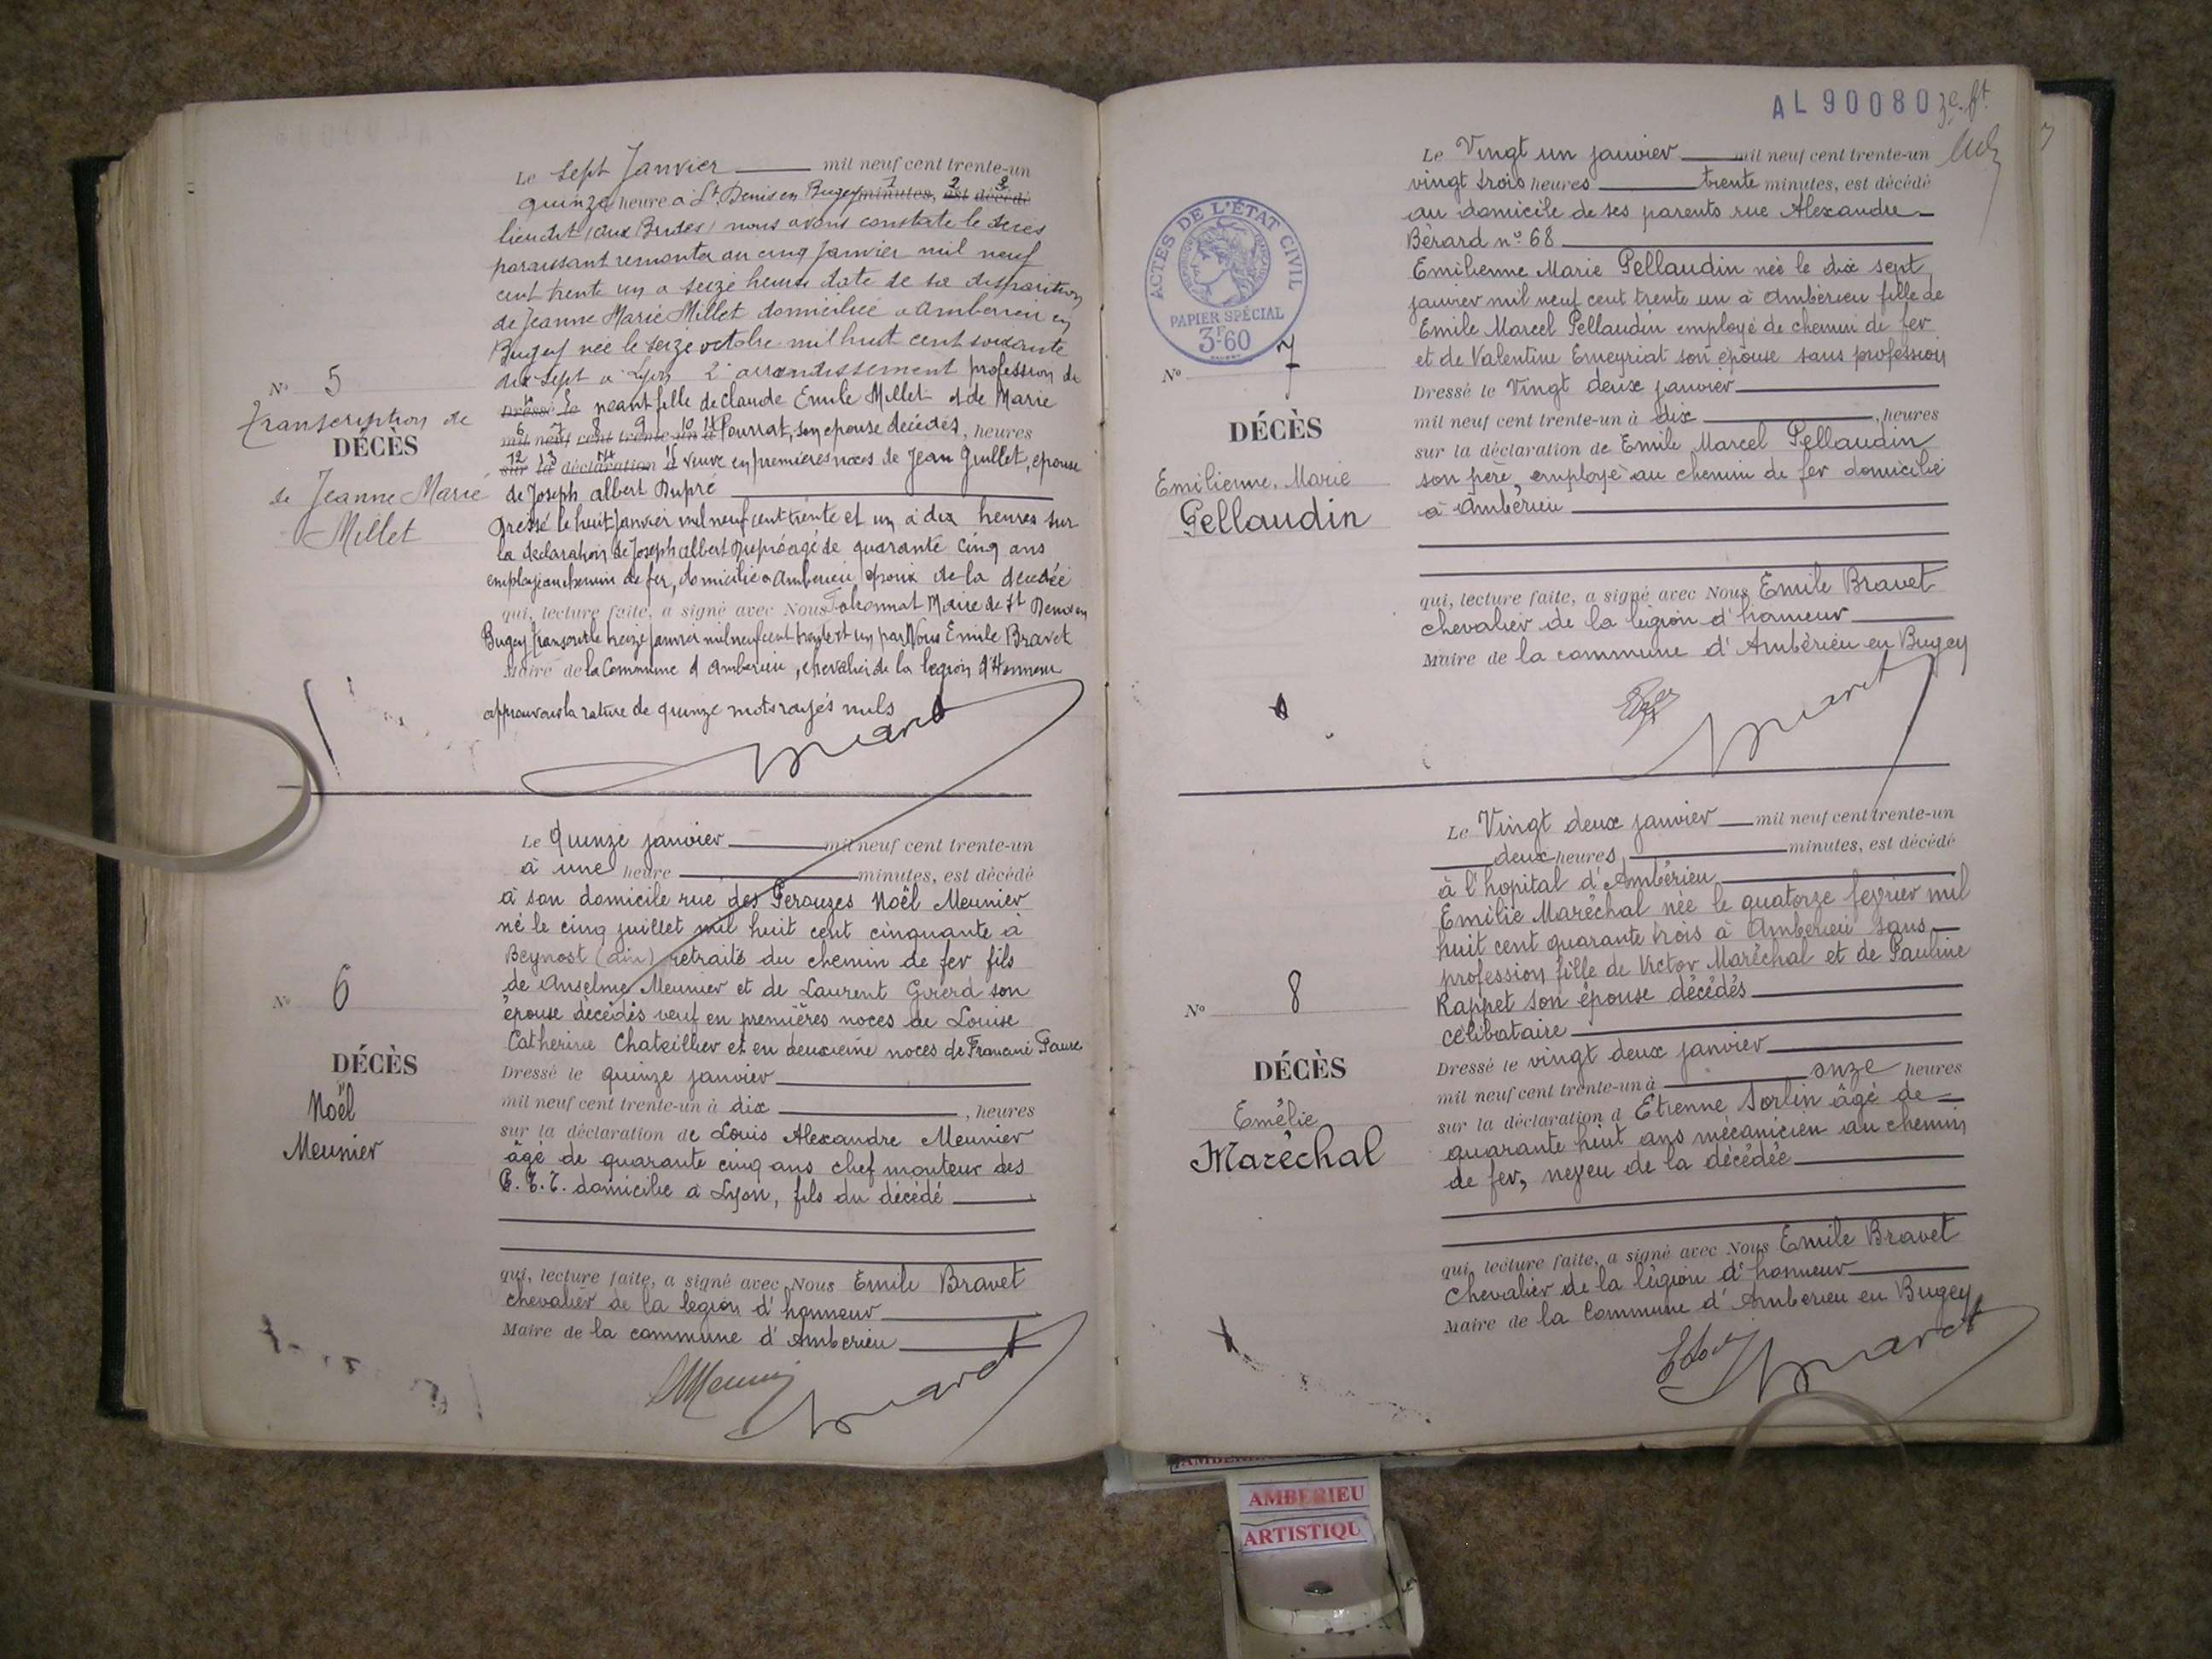 Le sept Janvier mil neuf cent trente-un
quinze heure à St Denis en Bugey minutes, est décédé
1 2 3
lieu dit (aux Brides) nous avons constaté le décès
paraissant remonter au cinq Janvier mil neuf
cent trente un a seize heures date de sa disparition
de Jeanne Marie Millet domiciliée a Amberieu en
Bugey née le seize octobre mil huit cent soixante
dix sept a Lyon 2e arrondissement profession de
Dressé le neant fille de Claude Emile Millet et de Marie
mil neuf cent trente-un à Pourrat, son epouse décédés, heures
6 7 8 9 10 11
sur la déclaration d veuve en premieres noces de Jean Guillet, epouse
12 13 14 15
de Joseph Albert Dupré
Dressé le huit Janvier mil neuf cent trente et un à dix heures sur
la declaration de Joseph Albert Dupré agé de quarante cinq ans
employé au chemin de fer, domicilié a Amberieu epoux de la decedée
qui, lecture faite, a signé avec Nous Maire de St Denis en
Bugey Transcrit le treize Janvier mil neuf cent trente et un par Nous Emile Bravet
Maire de la Commune d'Amberieu, chevalier de la legion d'Honneur
approuvons la rature de quinze mots rayés nuls
Bravet
No 5
Transcription de
DÉCÈS
de Jeanne Marie
Millet
Le Quinze janvier mil neuf cent trente-un
à une heure minutes, est décédé
à son domicile rue des Perouzes Noël Meunier
né le cinq juillet mil huit cent cinquante à
Beynost (ain) retraité du chemin de fer fils
de Anselme Meunier et de Laurent Girerd son
épouse décédés veuf en premières noces de Louise
Catherine Chateillier et en deuxieme noces de Faure
Dressé le quinze janvier
mil neuf cent trente-un à dix, heures
sur la déclaration de Louis Alexandre Meunier
âgé de quarante cinq ans chef monteur des
P.T.T. domicilié à Lyon, fils du décédé
qui, lecture faite, a signé avec Nous Emile Bravet
chevalier de la legion d'honneur
Maire de la commune d'Amberieu
Meunier Bravet
No 6
DÉCÈS
Noël
Meunier
AL 90080
7
ACTES DE L'ÉTAT CIVIL
PAPIER SPÉCIAL
3F60
Le Vingt un janvier mil neuf cent trente-un
vingt trois heures trente minutes, est décédé
au domicile de ses parents rue Alexandre
Bérard no 68
Emilienne Marie Pellaudin née le dix sept
janvier mil neuf cent trente un à Ambérieu fille de
Emile Marcel Pellaudin employé de chemin de fer
et de Valentine Emeyriat son épouse sans profession
Dressé le Vingt deux janvier
mil neuf cent trente-un à dix, heures
sur la déclaration de Emile Marcel Pellaudin
son père, employé au chemin de fer domicilié
à Ambérieu
qui, lecture faite, a signé avec Nous Emile Bravet
chevalier de la légion d'honneur
Maire de la commune d'Ambérieu en Bugey
Bravet
No 7
DÉCÈS
Emilienne. Marie
Pellaudin
Le Vingt deux janvier mil neuf cent trente-un
deux heures, minutes, est décédé
à l'hopital d'Ambérieu
Emilie Maréchal née le quatorze fevrier mil
huit cent quarante trois à Amberieu sans
profession fille de Victor Maréchal et de Pauline
Rappet son épouse décédés
célibataire
Dressé le vingt deux janvier
mil neuf cent trente-un à onze heures
sur la déclaration d Etienne Sorlin âgé de
quarante huit ans mécanicien au chemin
de fer, neveu de la décédée
qui, lecture faite, a signé avec Nous Emile Bravet
Chevalier de la légion d'honneur
Maire de la Commune d'Amberieu en Bugey
Bravet
No 8
DÉCÈS
Emélie
Maréchal
AMBERIEU
ARTISTIQU